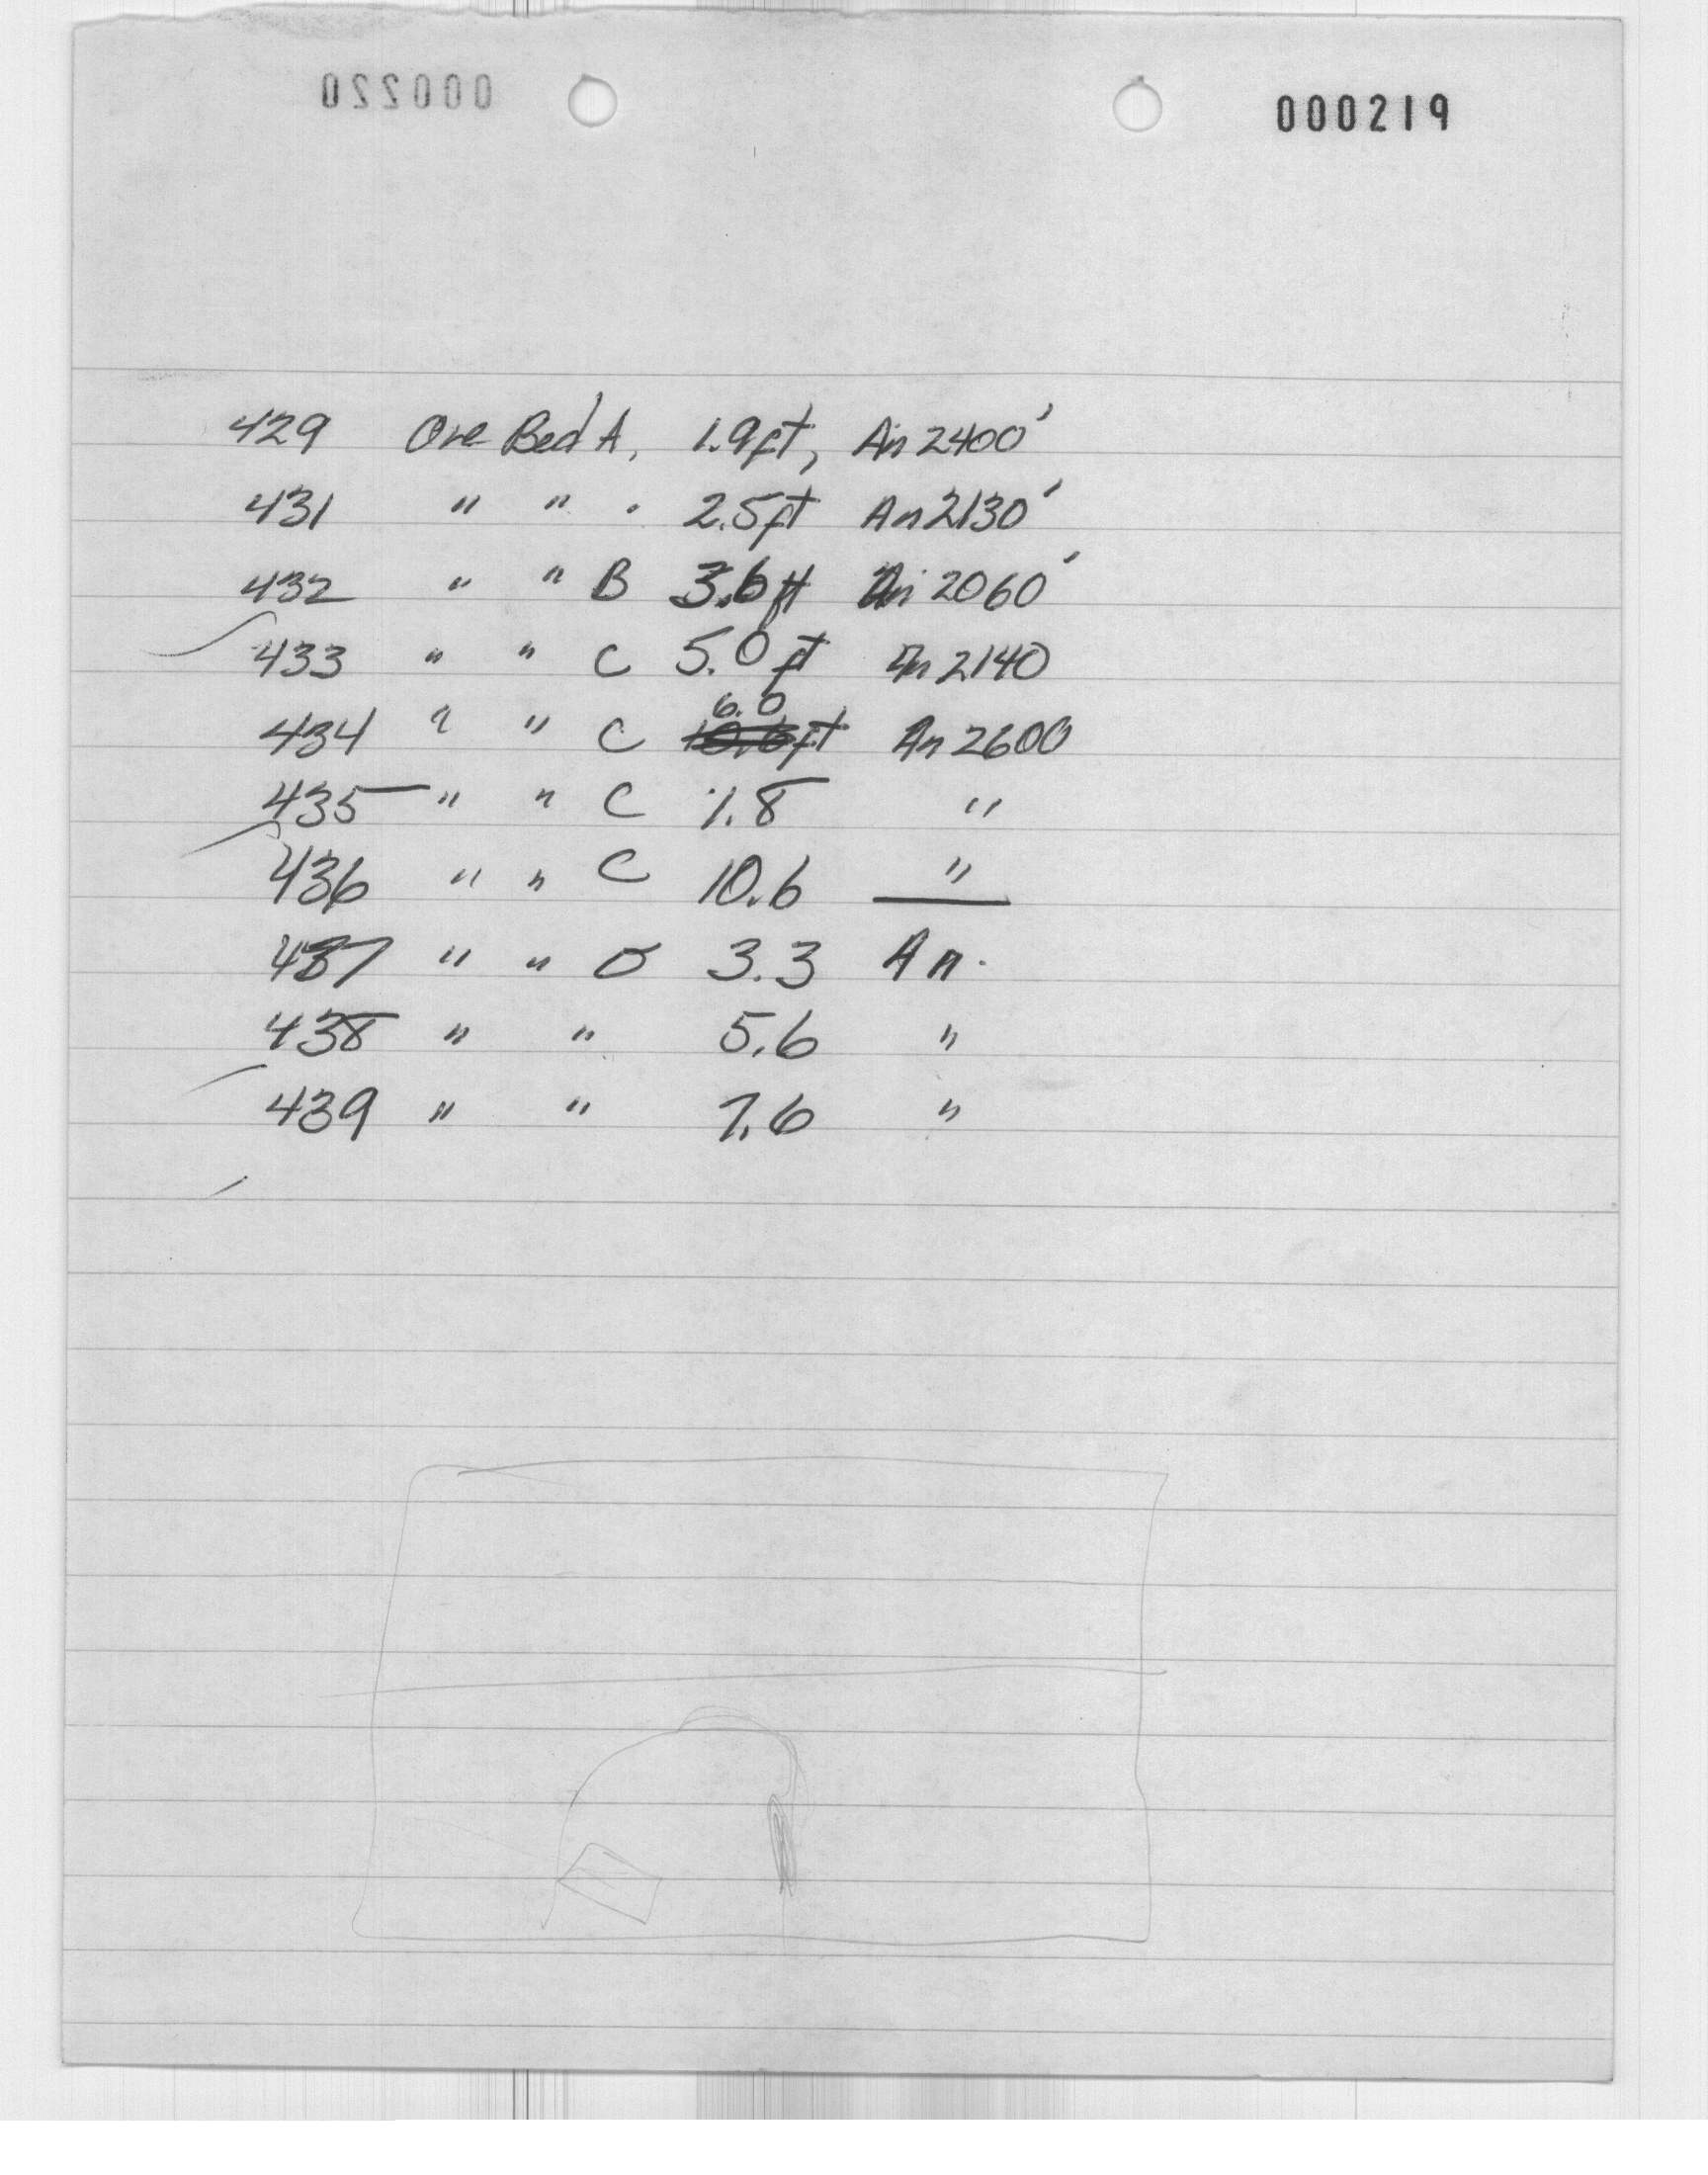 000219
429 Ore Bed A, 1.9ft, An 2400'
431 " " " 2.5ft An 2130'
432 " " B 3.6ft An 2060'
433 " " C 5.0ft An 2140
434 " " C 6.0 ft An 2600
435 " " C 1.8 "
436 " " C 10.6 "
437 " " D 3.3 An.
438 " " 5.6 "
439 " " 7.6 "